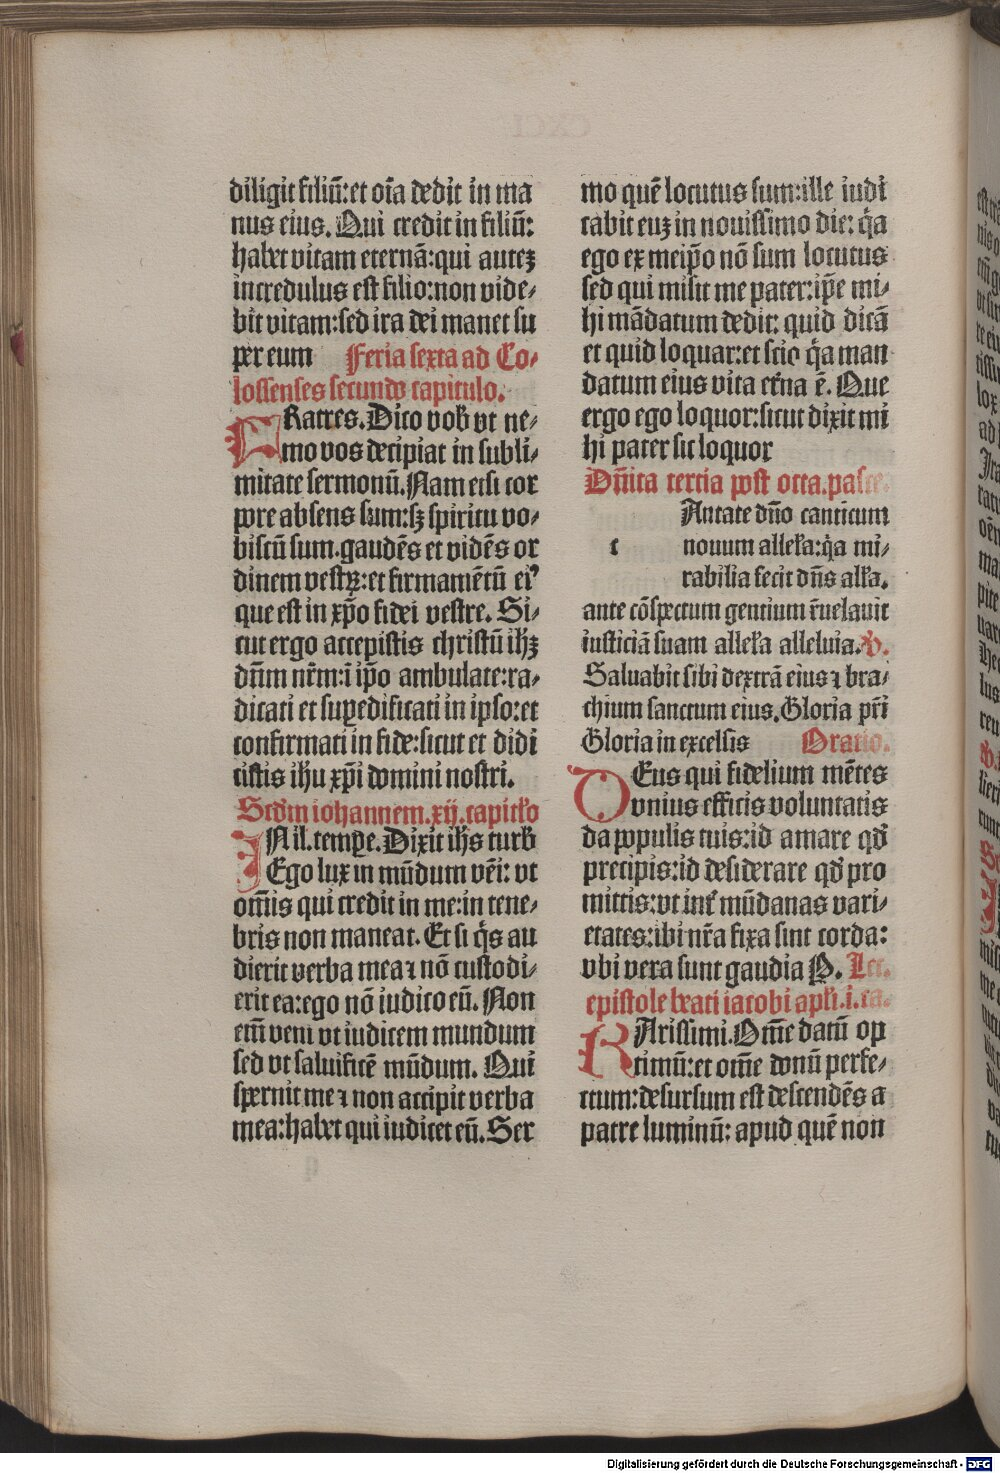 diligit filiū:et oīa dedit in ma
nus eius. Qui credit in filiū:
habet vitam eternā:qui autez
incredulus est filio:non vide/
bit vitam:sed ira dei manet su
per eum Feria sexta ad Co/
lossenses secundo capitulo.
FRatres. Dico vob̄ vt ne/
mo vos decipiat in subli/
mitate sermonū. Nam etsi cor
pore absens sum:sꝫ spiritu vo/
biscū sum.gaudēs et vidēs or
dinem vestrꝫ:et firmamētū eiꝰ
que est in xp̄o fidei vestre. Si/
cut ergo accepistis christū ih̄ꝫ
dn̄m nr̄m:ī ip̄o ambulate:ra/
dicati et suꝑedificati in ipso:et
confirmati in fide:sicut et didi
cistis ih̄u xp̄i domini nostri.
Scd̄m iohannem.xij.capitło
IN il.tempe. Dixit ih̄s turb̄
Ego lux in mūdum vēi: vt
om̄is qui credit in me:in tene/
bris non maneat. Et si q̄s au
dierit verba mea ⁊ nō custodi/
erit ea:ego nō iudico eū. Non
em̄ veni vt iudicem mundum
sed vt saluificē mūdum. Qui
spernit me ⁊ non accipit verba
mea:habet qui iudicet eū. Ser
mo quē locutus sum:ille iudi
cabit euꝫ in nouissimo die: q̄a
ego ex meip̄o nō sum locutus
sed qui misit me pater:ip̄e mi/
hi mādatum dedit: quid dicā
et quid loquar:et scio q̄a man
datum eius vita et̄na ē. Que
ergo ego loquor:sicut dixit mi
hi pater sic loquor
Dn̄ica tercia post octa.pasce.
Antate dn̄o canticum
c nouum allel̄a:q̄a mi/
rabilia fecit dn̄s all̄a.
ante cōspectum gentium r̄uelauit
iusticiā suam allel̄a alleluia. v̄.
Saluabit sibi dextrā eius ⁊ bra/
chium sanctum eius. Gloria pr̄i
Gloria in excelsis Oratio.
DEus qui fidelium mētes
vnius efficis voluntatis
da populis tuis:id amare qd̄
precipis:id desiderare qd̄ pro
mittis:vt int̄ mūdanas vari/
etates:ibi nr̄a fixa sint corda:
vbi vera sunt gaudia P. Lec.
epistole beati iacobi apłi.i.ca.
KArissimi. Om̄e datū op
timū:et om̄e donū perfe/
ctum:desursum est descendēs a
patre luminū: apud quē non
Digitalisierung gefördert durch die Deutsche Forschungsgemeinschaft - DFG